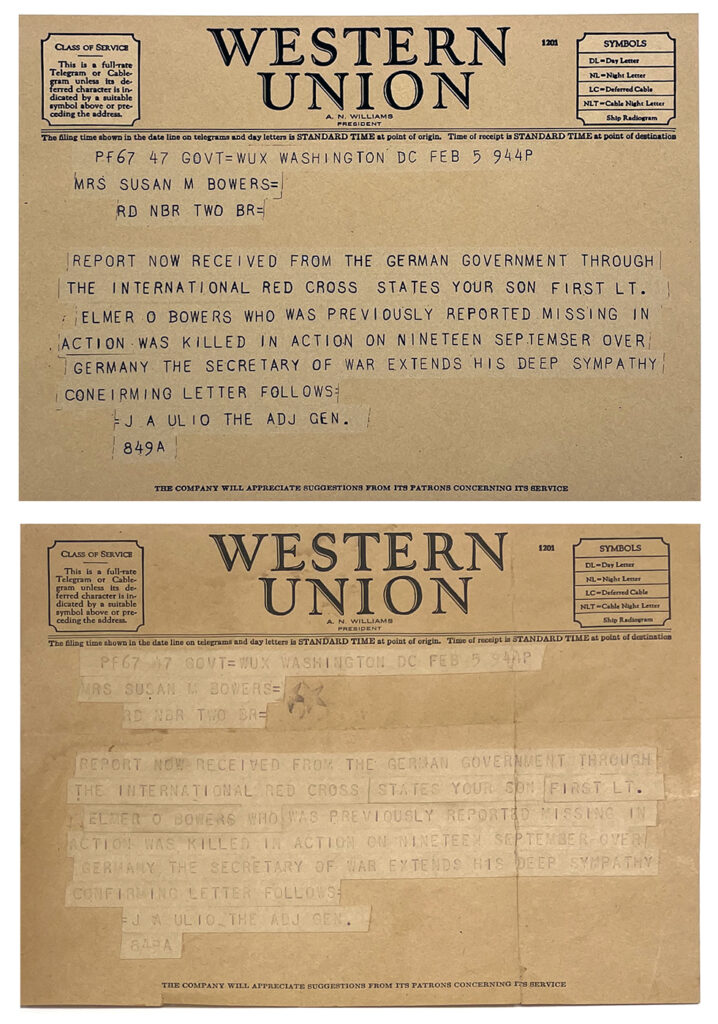 CLASS OF SERVICE
This is a full-rate
Telegram or Cable-
gram unless its de-
ferred character is in-
dicated by a suitable
symbol above or pre-
ceding the address.
WESTERN
UNION
A. N. WILLIAMS
PRESIDENT
1201
SYMBOLS
DL=Day Letter
NL=Night Letter
LC=Deferred Cable
NLT=Cable Night Letter
Ship Radiogram
The filing time shown in the date line on telegrams and day letters is STANDARD TIME at point of origin. Time of receipt is STANDARD TIME at point of destination
PF67 47 GOVT=WUX WASHINGTON DC FEB 5 944P
MRS SUSAN M BOWERS=
RD NBR TWO BR=
REPORT NOW RECEIVED FROM THE GERMAN GOVERNMENT THROUGH
THE INTERNATIONAL RED CROSS STATES YOUR SON FIRST LT.
ELMER O BOWERS WHO WAS PREVIOUSLY REPORTED MISSING IN
ACTION WAS KILLED IN ACTION ON NINETEEN SEPTEMBER OVER
GERMANY THE SECRETARY OF WAR EXTENDS HIS DEEP SYMPATHY
CONEIRMING LETTER FOLLOWS=
=J A ULIO THE ADJ GEN.
849A
THE COMPANY WILL APPRECIATE SUGGESTIONS FROM ITS PATRONS CONCERNING ITS SERVICE
CLASS OF SERVICE
This is a full-rate
Telegram or Cable-
gram unless its de-
ferred character is in-
dicated by a suitable
symbol above or pre-
ceding the address.
WESTERN
UNION
A. N. WILLIAMS
PRESIDENT
1201
SYMBOLS
DL=Day Letter
NL=Night Letter
LC=Deferred Cable
NLT=Cable Night Letter
Ship Radiogram
The filing time shown in the date line on telegrams and day letters is STANDARD TIME at point of origin. Time of receipt is STANDARD TIME at point of destination
PF67 47 GOVT=WUX WASHINGTON DC FEB 5 944P
MRS SUSAN M BOWERS=
RD NBR TWO BR=
REPORT NOW RECEIVED FROM THE GERMAN GOVERNMENT THROUGH
THE INTERNATIONAL RED CROSS STATES YOUR SON FIRST LT.
ELMER O BOWERS WHO WAS PREVIOUSLY REPORTED MISSING IN
ACTION WAS KILLED IN ACTION ON NINETEEN SEPTEMBER OVER
GERMANY THE SECRETARY OF WAR EXTENDS HIS DEEP SYMPATHY
CONFIRMING LETTER FOLLOWS=
=J A ULIO THE ADJ GEN.
849A
THE COMPANY WILL APPRECIATE SUGGESTIONS FROM ITS PATRONS CONCERNING ITS SERVICE